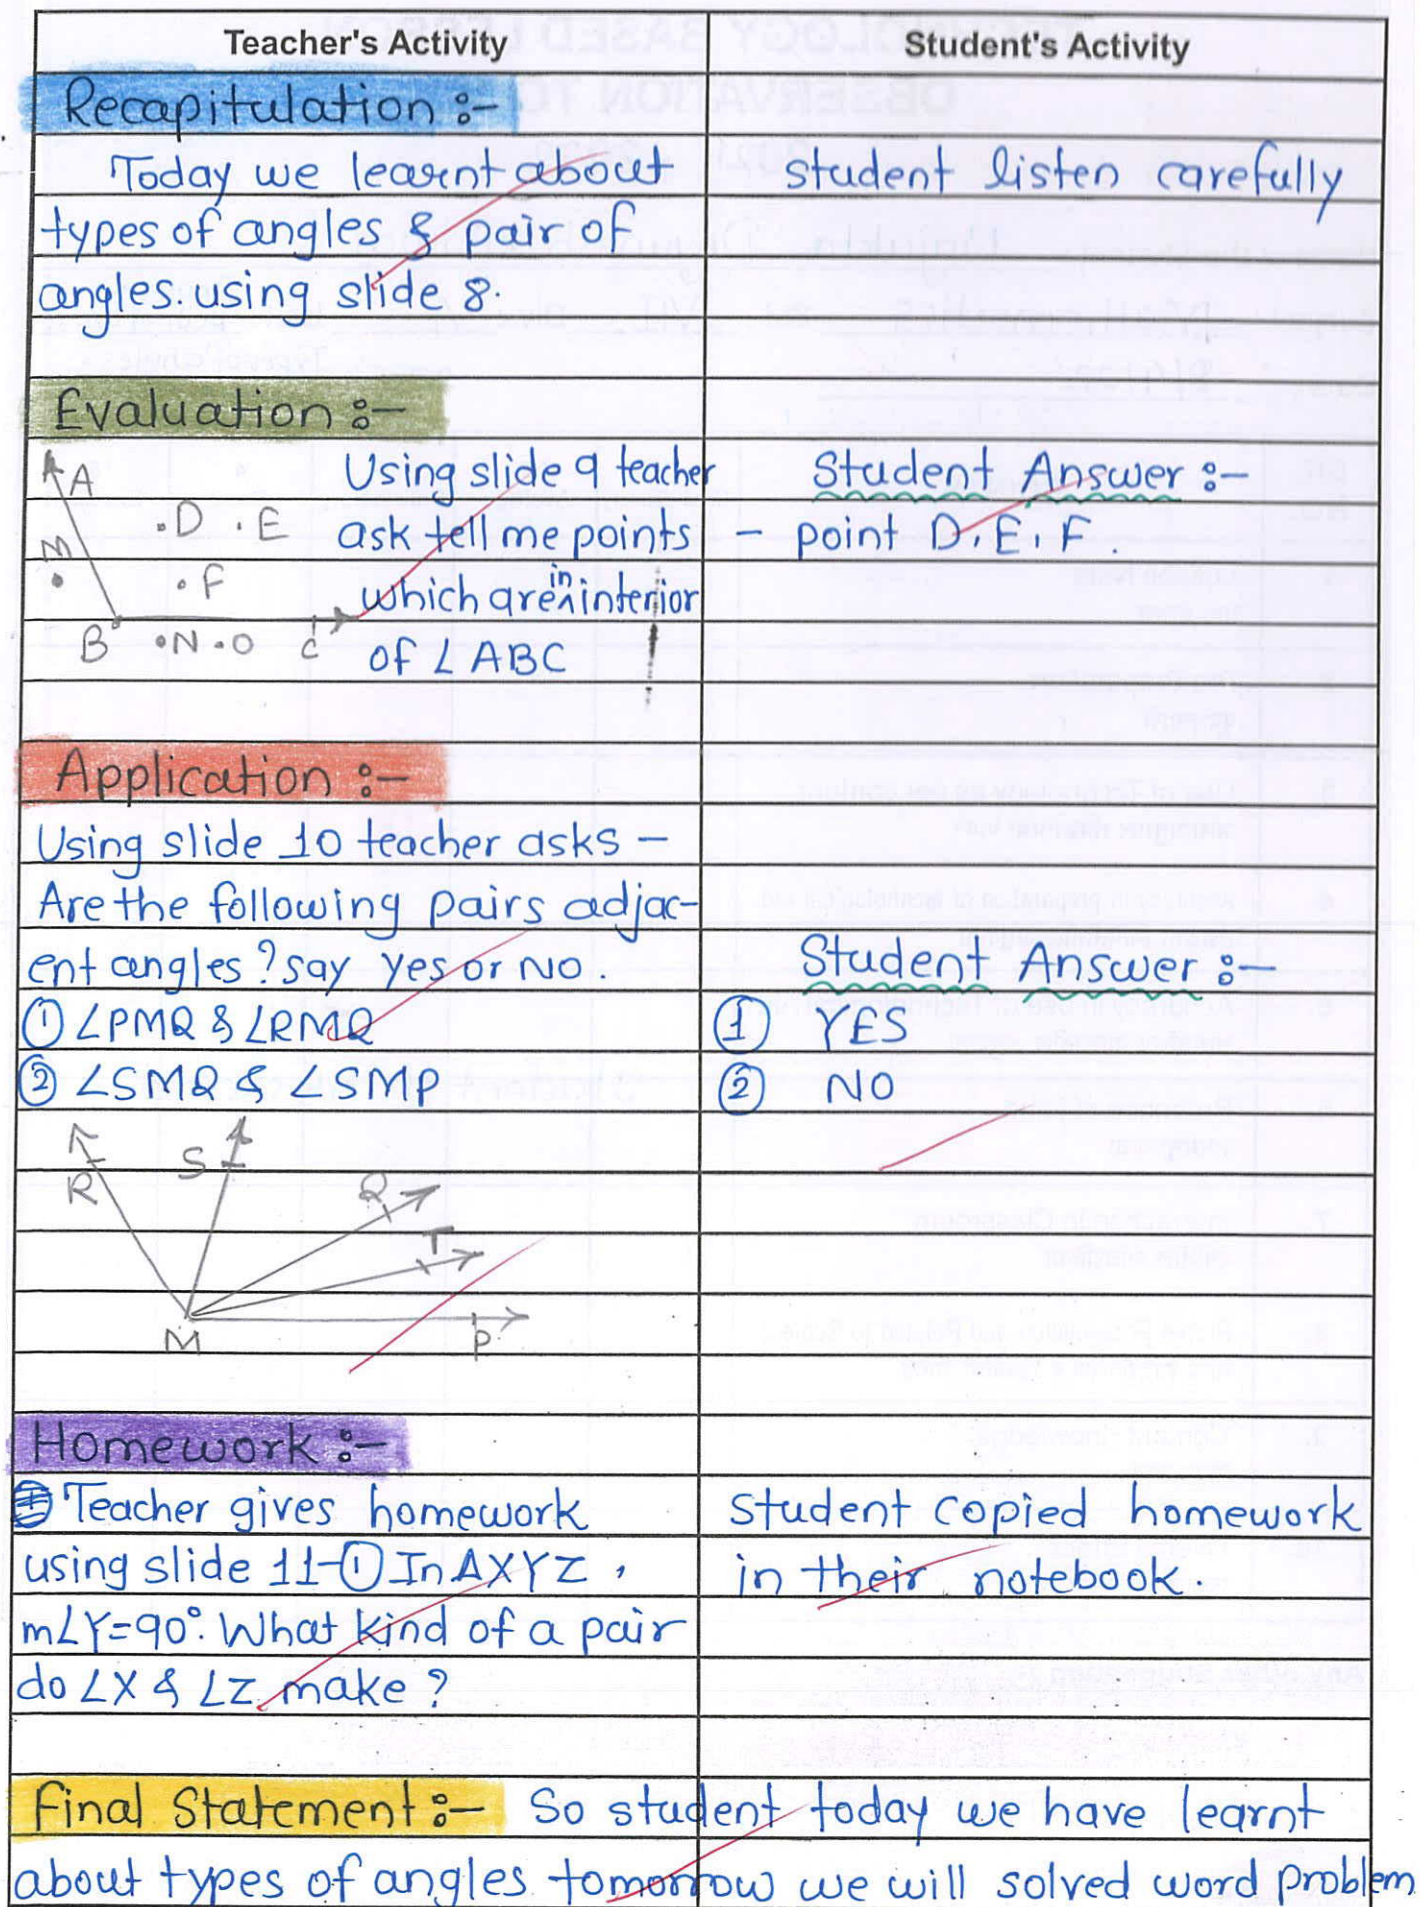 Teacher's Activity
Student's Activity
Recapitulation :-
Today we learnt about
types of angles & pair of
angles. using slide 8.
Student listen carefully
Evaluation :-
A
.D .E
M
.F
B .N .O C
Using slide 9 teacher
ask tell me points
which are in interior
of ∠ABC
Student Answer :-
- point D, E, F.
Application :-
Using slide 10 teacher asks -
Are the following pairs adjac-
ent angles? say yes or no.
① ∠PMQ & ∠RMQ
② ∠SMQ & ∠SMP
Student Answer :-
① YES
② NO
R S Q
T
M P
Homework :-
Teacher gives homework
using slide 11-① In ΔXYZ,
m∠Y=90°. What kind of a pair
do ∠X & ∠Z make?
Student copied homework
in their notebook.
Final Statement :- So student today we have learnt
about types of angles tomorrow we will solved word problem